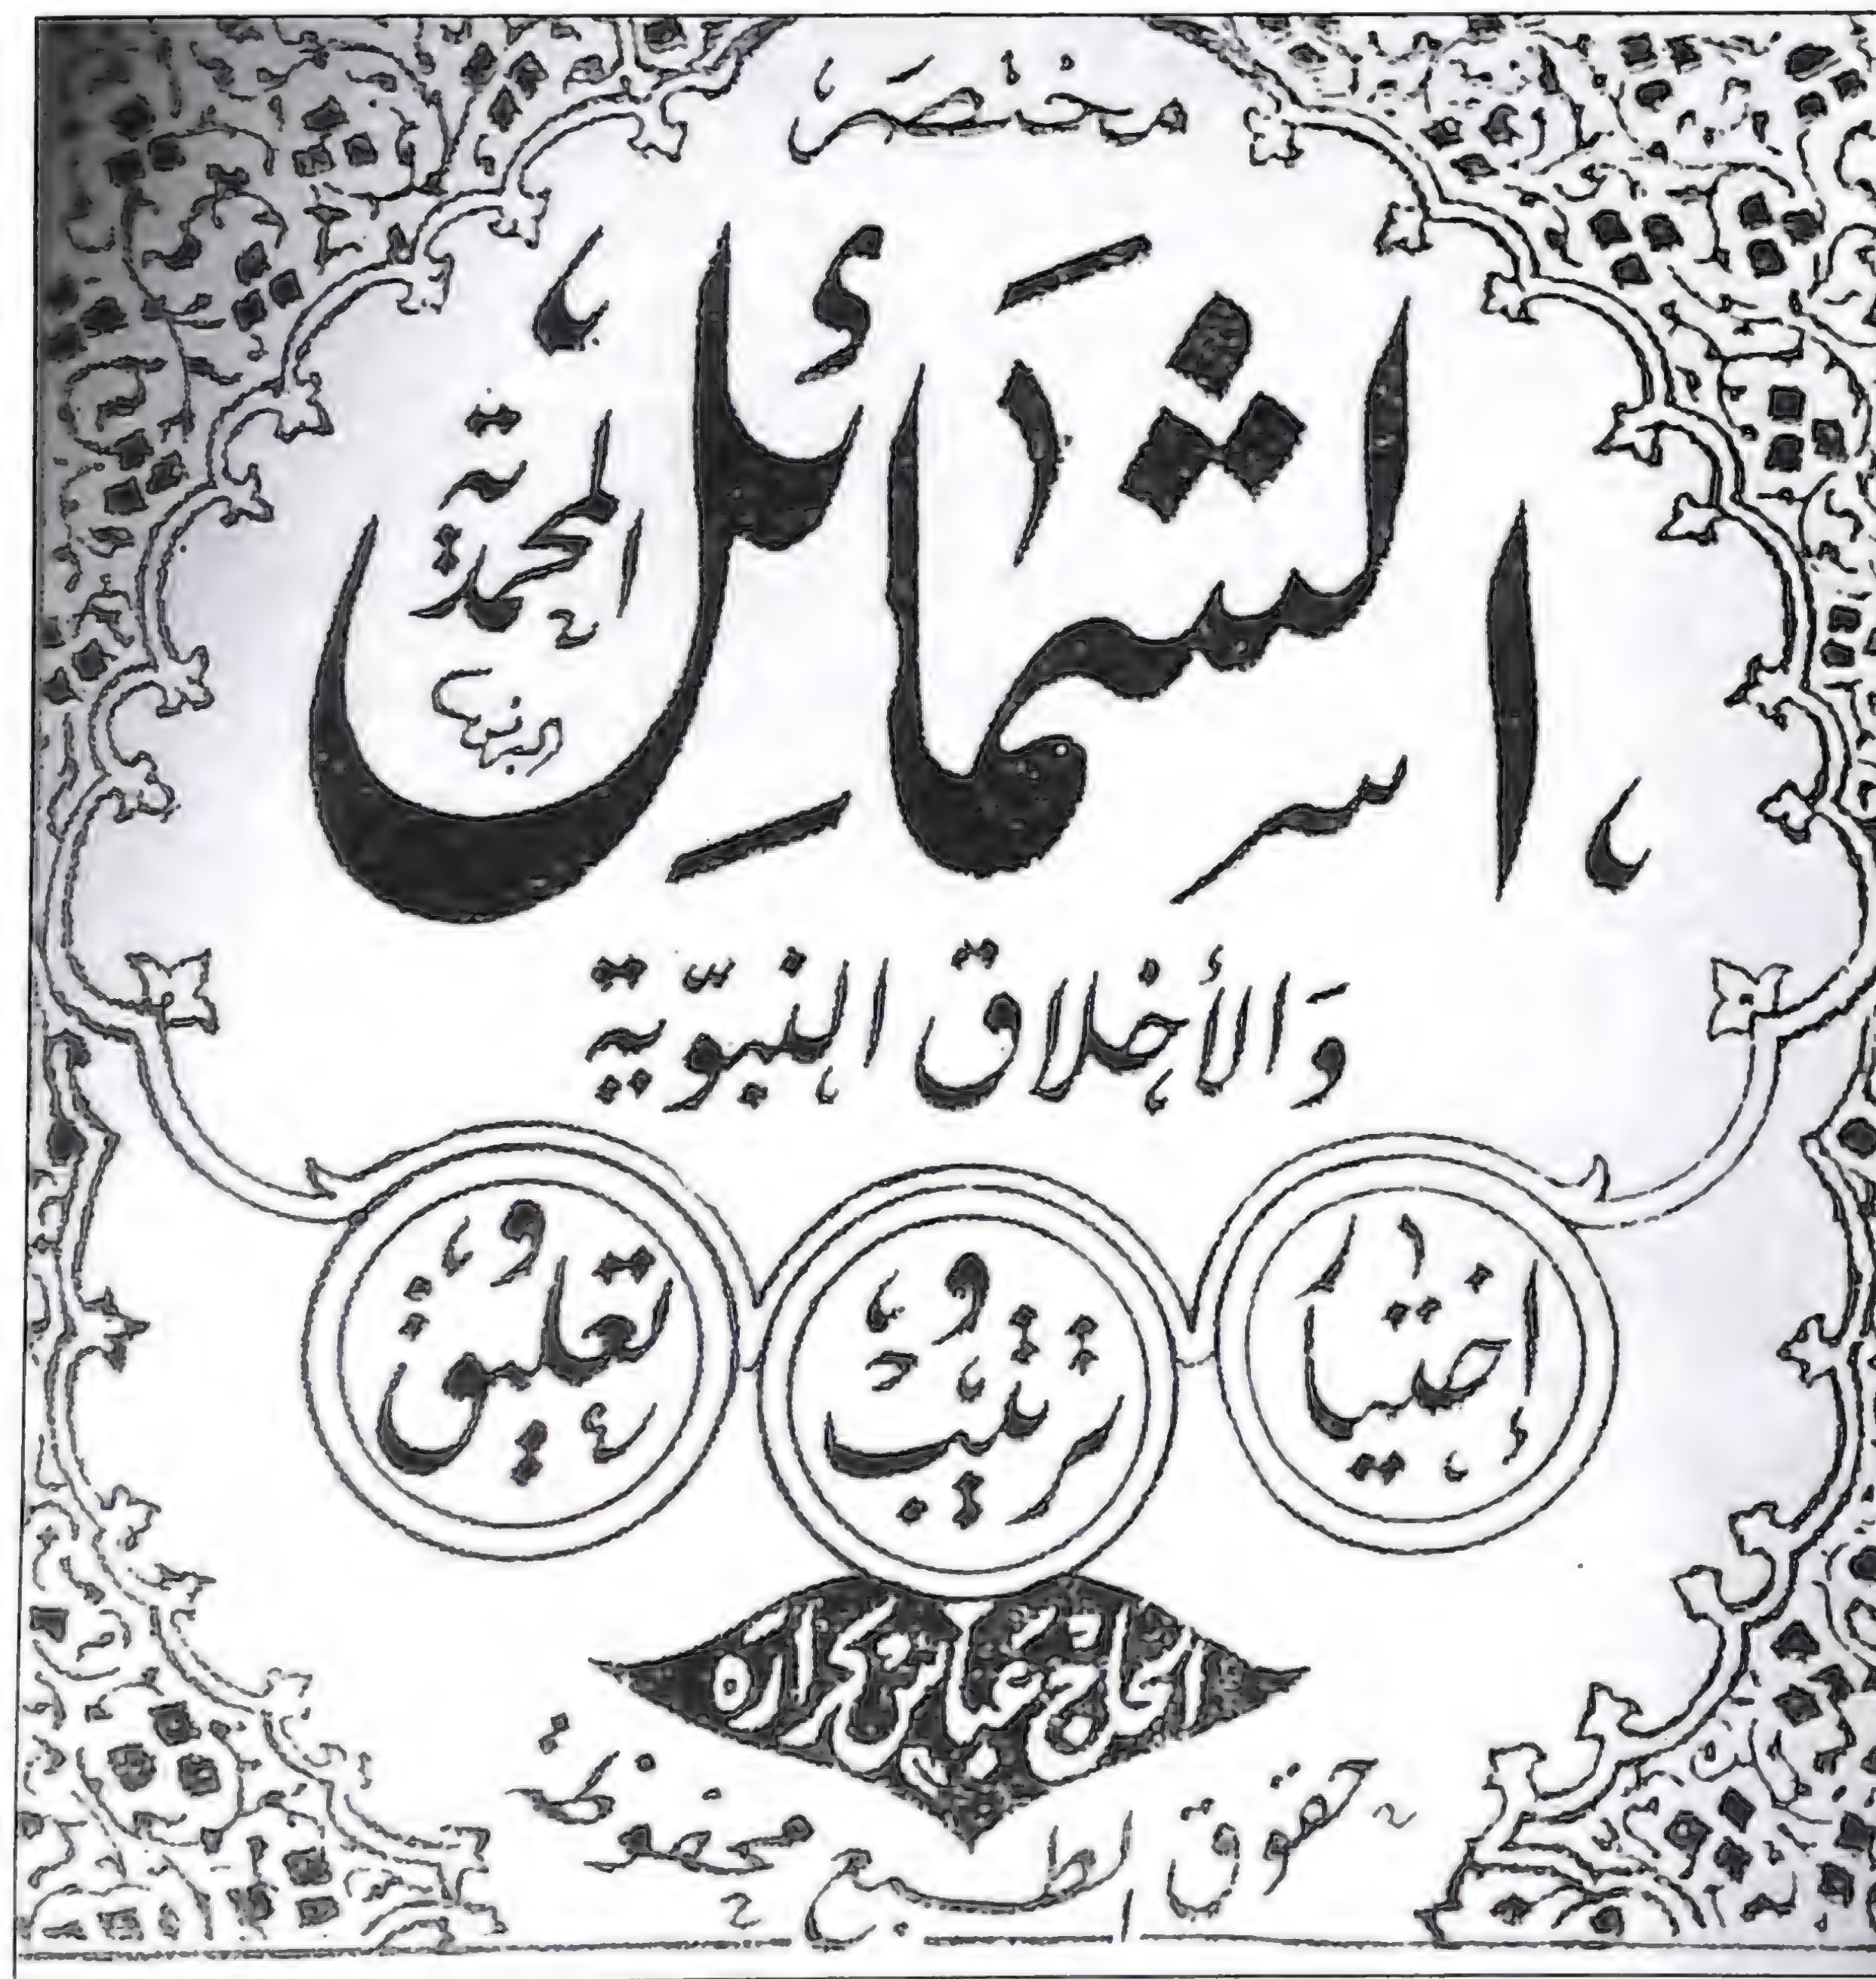 مختصر
الشمائل
المحمدية
وَالأخلاق النبوّية
إختيار
وترتيب
وتعليق
الحاج عباس كراره
حقوق الطبع محفوظة